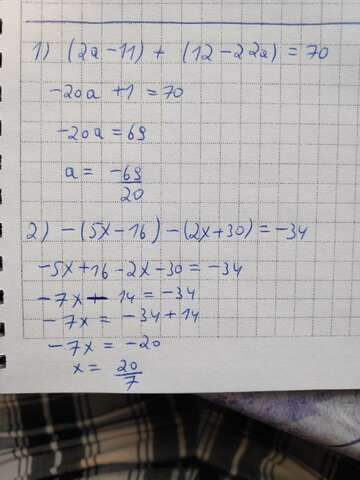 1) (2a-11) + (12-22a) = 70
-20a +1 = 70
-20a = 69
a = -69/20
2) -(5x-16)-(2x+30)=-34
-5x+16-2x-30=-34
-7x - 14 = -34
-7x = -34+14
-7x = -20
x = 20/7